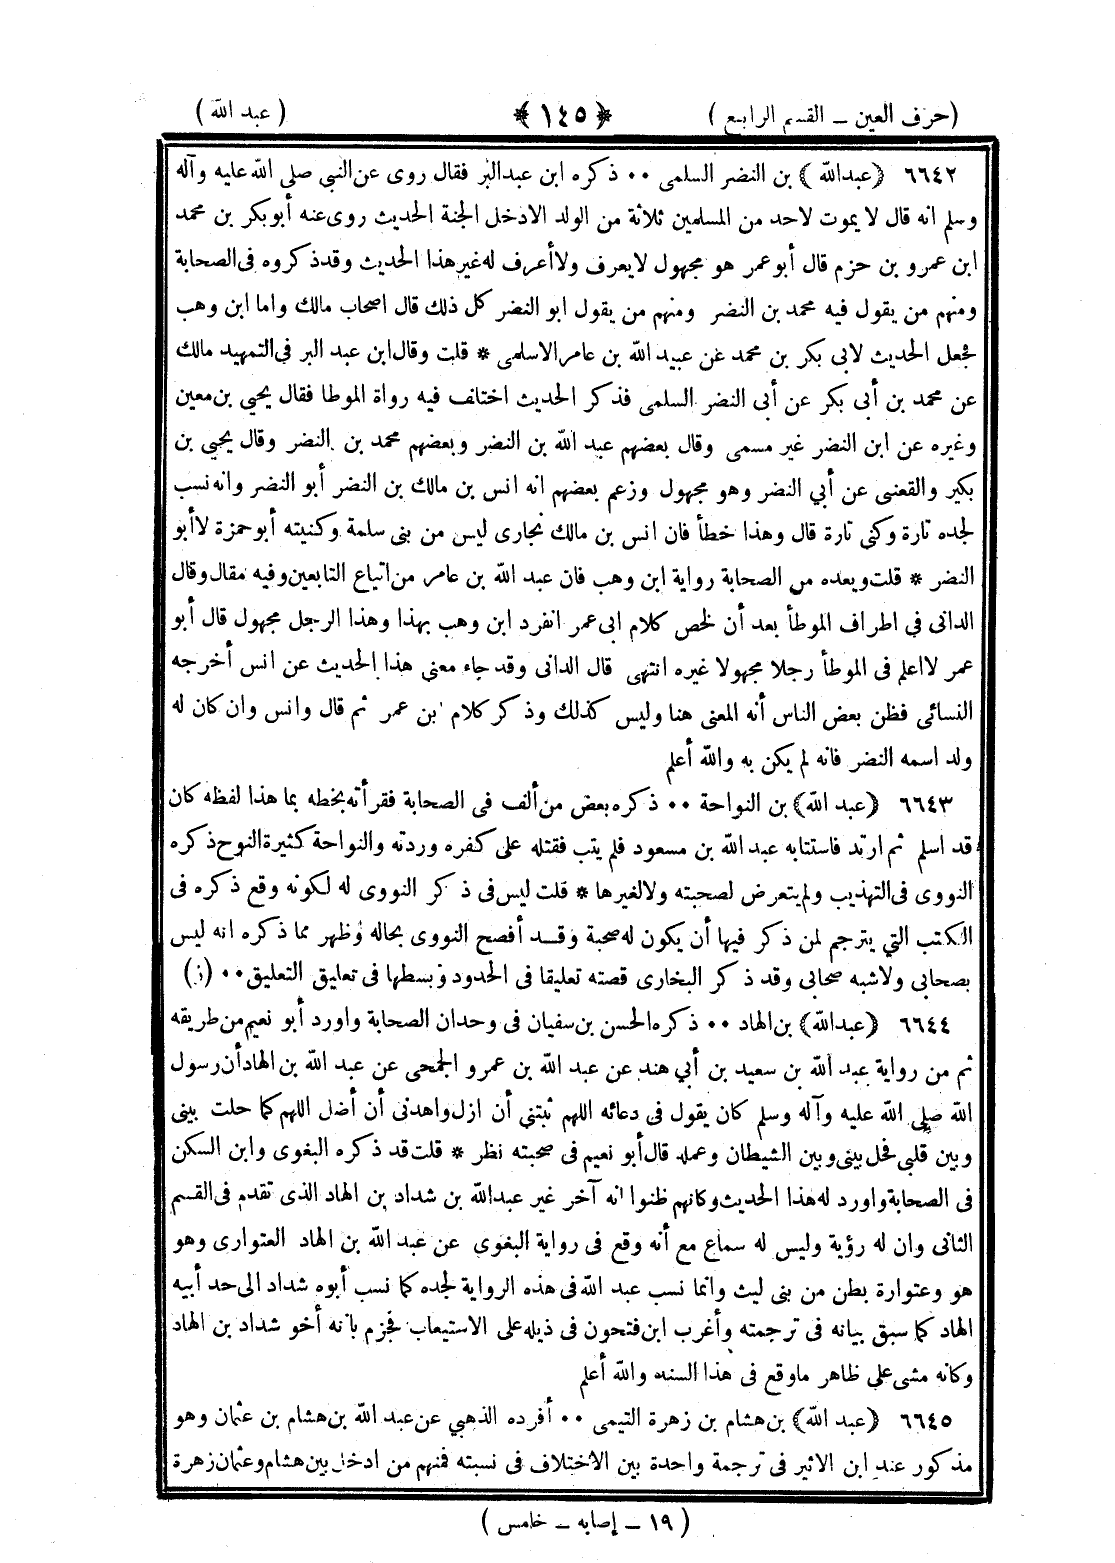 (حرف العين ـ القسم الرابع) ﴿١٤٥﴾ (عبد الله)
٦٦٤٢ ﴿عبدالله﴾ بن النضر السلمى ٠٠ ذكره ابن عبدالبر فقال روى عن النبي صلى الله عليه وآله
وسلم انه قال لا يموت لاحد من المسلمين ثلاثة من الولد الادخل الجنة الحديث روى عنه أبوبكر بن محمد
ابن عمرو بن حزم قال أبو عمر هو مجهول لايعرف ولاأعرف له غير هذا الحديث وقدذكروه فى الصحابة
ومنهم من يقول فيه محمد بن النضر ومنهم من يقول ابو النضر كل ذلك قال اصحاب مالك واما ابن وهب
فجعل الحديث لابى بكر بن محمد عن عبيد الله بن عامر الاسلمى * قلت وقال ابن عبد البر فى التمهيد مالك
عن محمد بن أبى بكر عن أبى النضر السلمى فذكر الحديث اختلف فيه رواة الموطا فقال يحيي بن معين
وغيره عن ابن النضر غير مسمى وقال بعضهم عبد الله بن النضر وبعضهم محمد بن النضر وقال يحيي بن
بكير والقعنبى عن أبي النضر وهو مجهول وزعم بعضهم انه انس بن مالك بن النضر أبو النضر وانه نسب
لجده تارة وكنى تارة قال وهذا خطأ فان انس بن مالك نجارى ليس من بنى سلمة وكنيته أبو حمزة لاأبو
النضر * قلت ويعده من الصحابة رواية ابن وهب فان عبد الله بن عامر من اتباع التابعين وفيه مقال وقال
الدانى في اطراف الموطأ بعد أن لخص كلام ابى عمر انفرد ابن وهب بهذا وهذا الرجل مجهول قال أبو
عمر لااعلم فى الموطأ رجلا مجهولا غيره انتهى قال الدانى وقد جاء معنى هذا الحديث عن انس أخرجه
النسائى فظن بعض الناس أنه المعنى هنا وليس كذلك وذكر كلام ابن عمر ثم قال وانس وان كان له
ولد اسمه النضر فانه لم يكن به والله أعلم
٦٦٤٣ ﴿عبد الله﴾ بن النواحة ٠٠ ذكره بعض من ألف فى الصحابة فقرأته بخطه بما هذا لفظه كان
قد اسلم ثم ارتد فاستتابه عبد الله بن مسعود فلم يتب فقتله على كفره وردته والنواحة كثيرة النوح ذكره
النووى فى التهذيب ولم يتعرض لصحبته ولالغيرها * قلت ليس فى ذكر النووى له لكونه وقع ذكره فى
الكتب التي يترجم لمن ذكر فيها أن يكون له صحبة وقد أفصح النووى بحاله وظهر مما ذكره انه ليس
بصحابي ولاشبه صحابي وقد ذكر البخارى قصته تعليقا فى الحدود وبسطها فى تعليق التعليق ٠٠ (ز)
٦٦٤٤ ﴿عبدالله﴾ بن الهاد ٠٠ ذكره الحسن بن سفيان فى وحدان الصحابة واورد أبو نعيم من طريقه
ثم من رواية عبد الله بن سعيد بن أبي هند عن عبد الله بن عمرو الجمحى عن عبد الله بن الهاد أن رسول
الله صلى الله عليه وآله وسلم كان يقول فى دعائه اللهم ثبتني أن ازل واهدنى أن أضل اللهم كما حلت بينى
وبين قلبى فحل بينى وبين الشيطان وعمله قال أبو نعيم فى صحبته نظر * قلت قد ذكره البغوى وابن السكن
فى الصحابة واورد له هذا الحديث وكانهم ظنوا انه آخر غير عبدالله بن شداد بن الهاد الذى تقدم فى القسم
الثانى وان له رؤية وليس له سماع مع أنه وقع فى رواية البغوى عن عبد الله بن الهاد العتوارى وهو
هو وعتوارة بطن من بنى ليث وانما نسب عبد الله فى هذه الرواية لجده كما نسب أبوه شداد الى حد أبيه
الهاد كما سبق بيانه فى ترجمته وأغرب ابن فتحون فى ذيله على الاستيعاب فجزم بأنه أخو شداد بن الهاد
وكانه مشى على ظاهر ماوقع فى هذا السند والله أعلم
٦٦٤٥ ﴿عبد الله﴾ بن هشام بن زهرة التيمى ٠٠ أفرده الذهبي عن عبد الله بن هشام بن عثمان وهو
مذكور عند ابن الاثير فى ترجمة واحدة بين الاختلاف فى نسبته فمنهم من ادخل بين هشام وعثمان زهرة
(١٩ ـ إصابه ـ خامس)